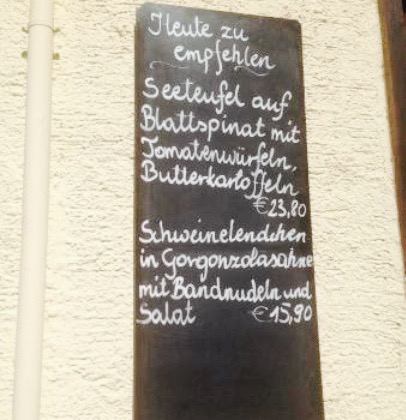 Heute zu
empfehlen
Seeteufel auf
Blattspinat mit
Tomatenwürfeln,
Butterkartoffeln
€23,80
Schweinelendchen
in Gorgonzolasahne
mit Bandnudeln und
Salat €15,90